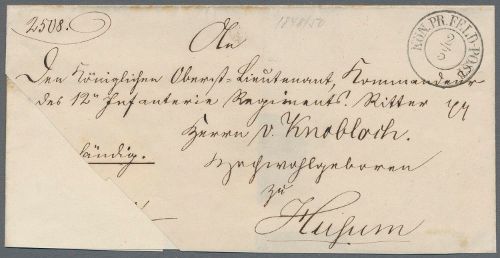 2508.
1848/50
KÖN. PR. FELD-POST
An
Den Königlichen Oberst-Lieutenant, Kommandeur
des 12n Infanterie Regiments. Ritter pp
Herrn v. Knobloch.
Hochwohlgeboren
ändig.
zu
Husum